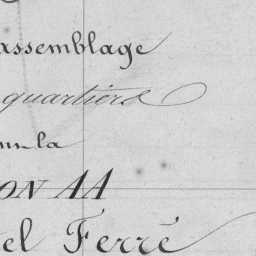 assemblage
quartiers
la
ON AA
el Ferré